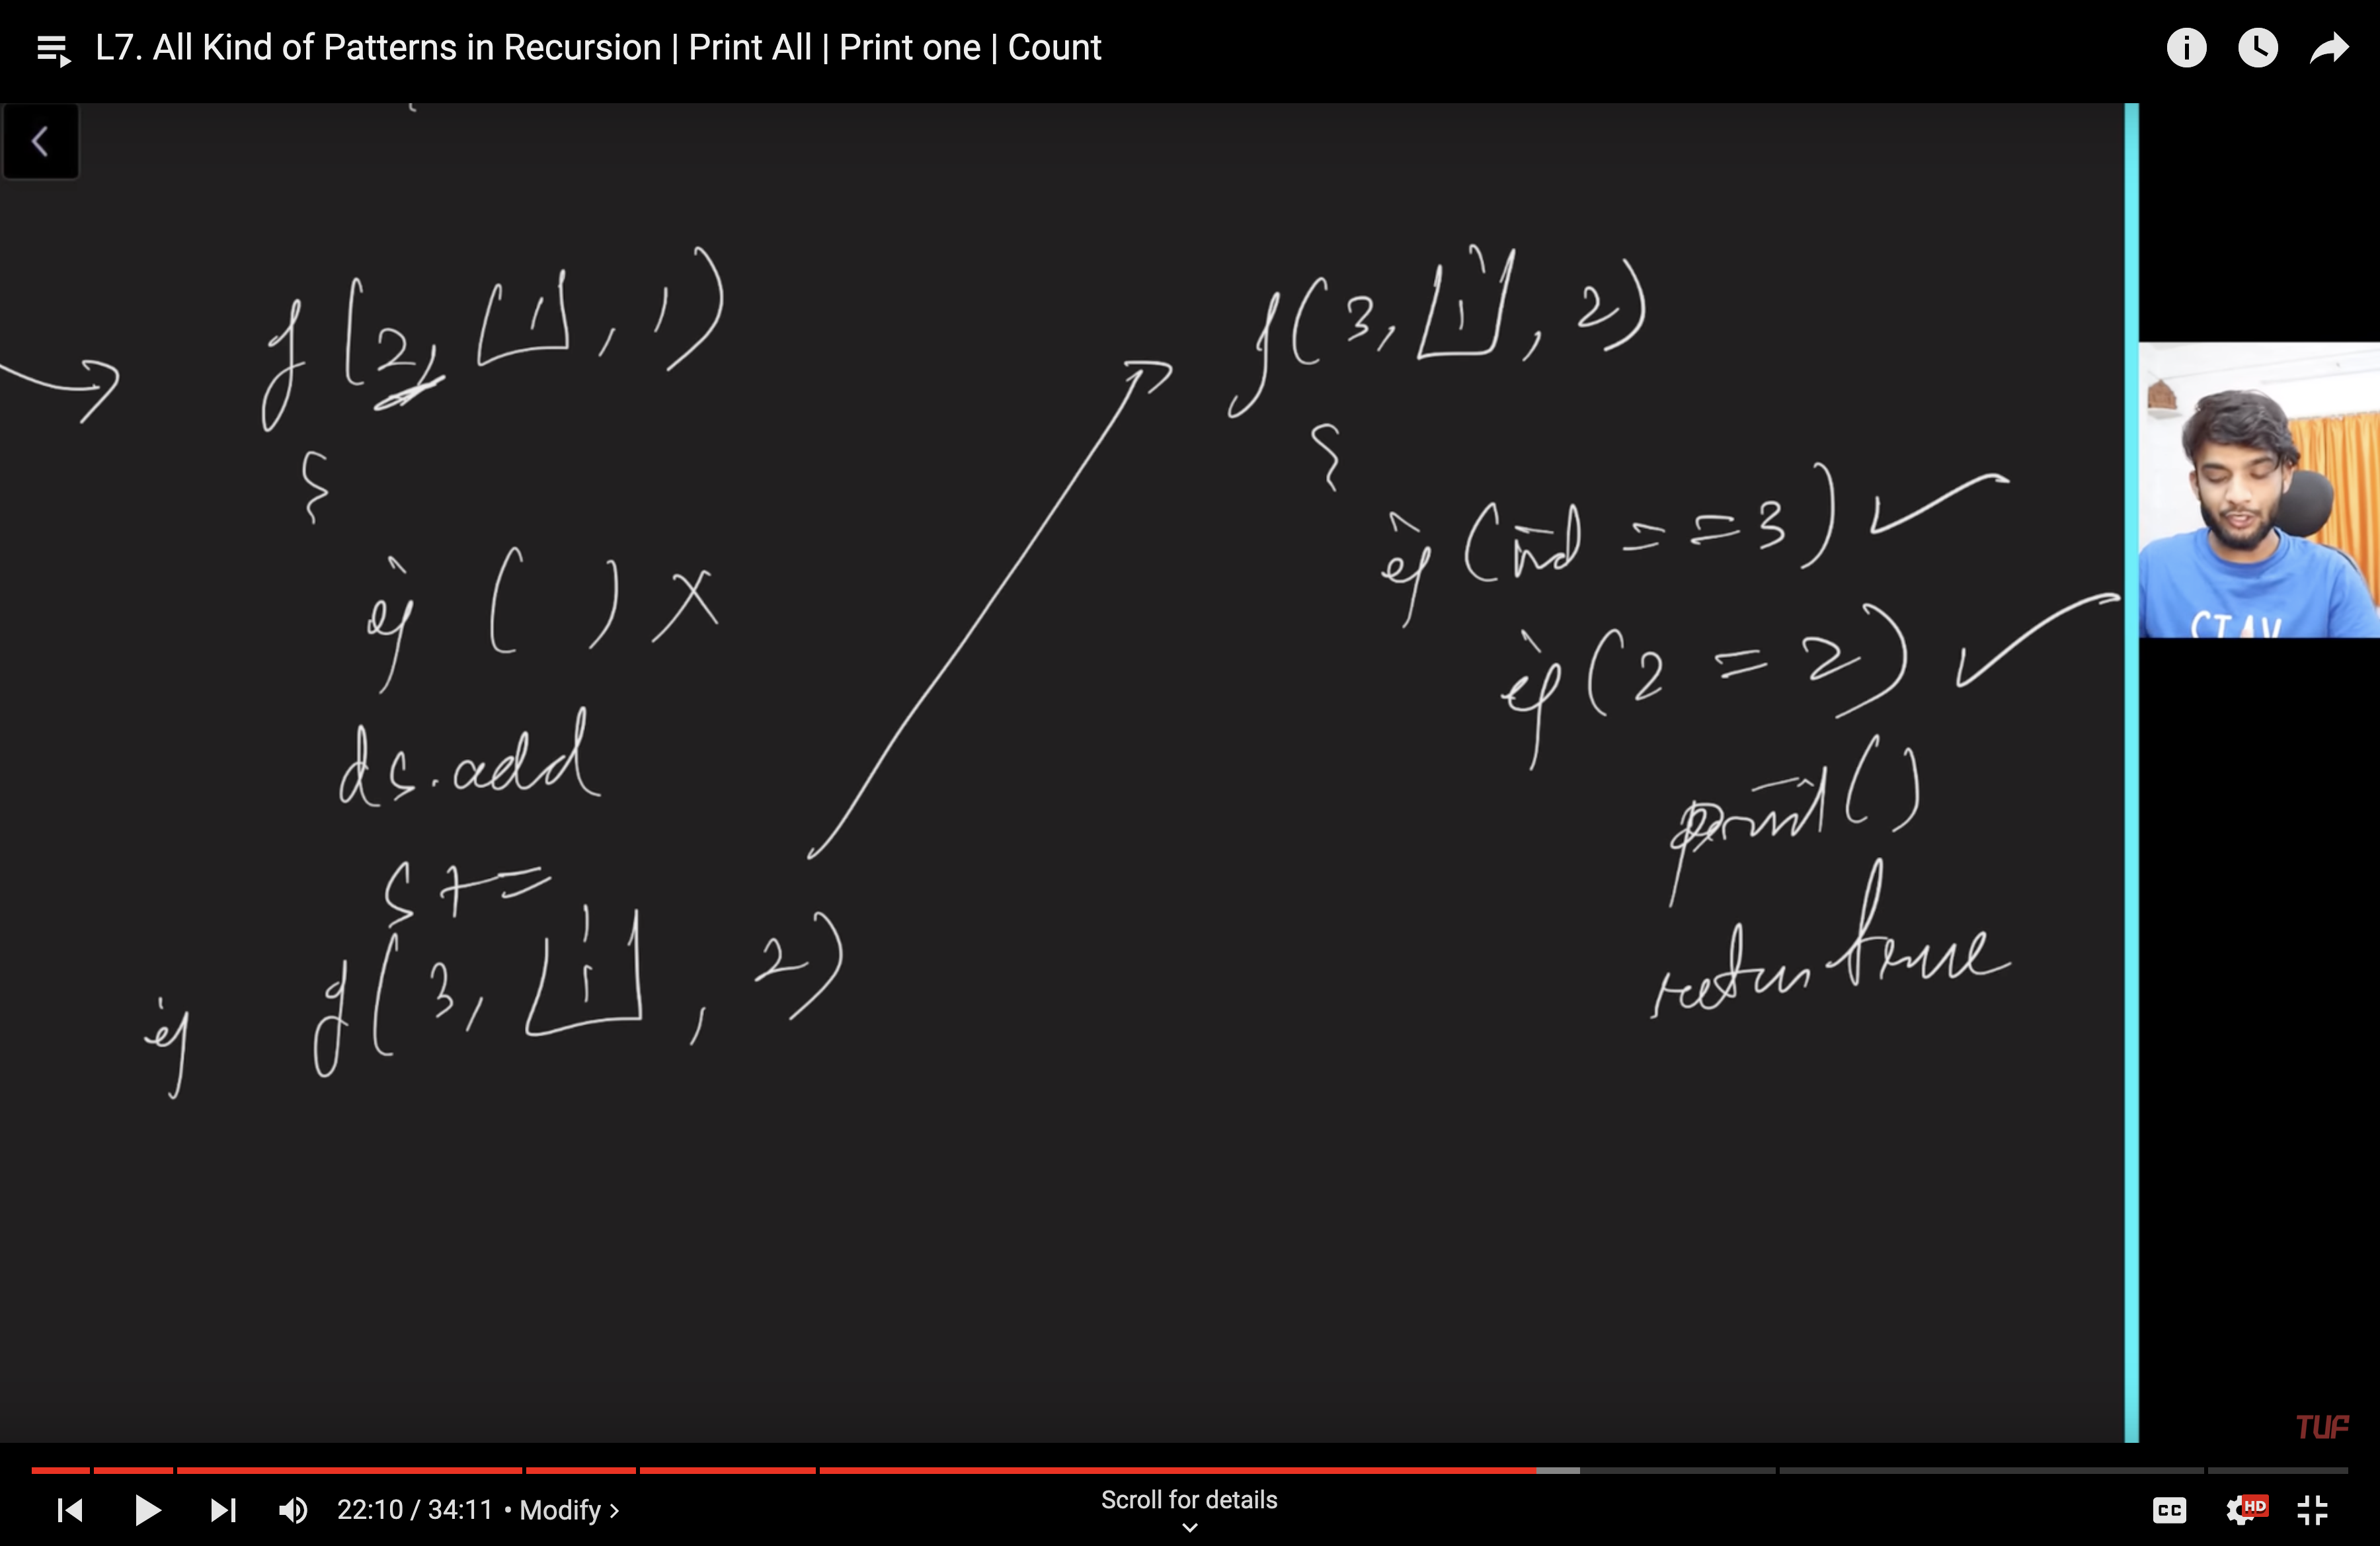 L7. All Kind of Patterns in Recursion | Print All | Print one | Count
f(2, [1], 1)
{
if ( ) x
ds.add
s +=
if f(3, [1 1], 2)
f(3, [1 1], 2)
{
if (ind == 3) ✓
if (2 = 2) ✓
print()
return true
STAY
TUF
22:10 / 34:11 • Modify >
Scroll for details
CC
HD